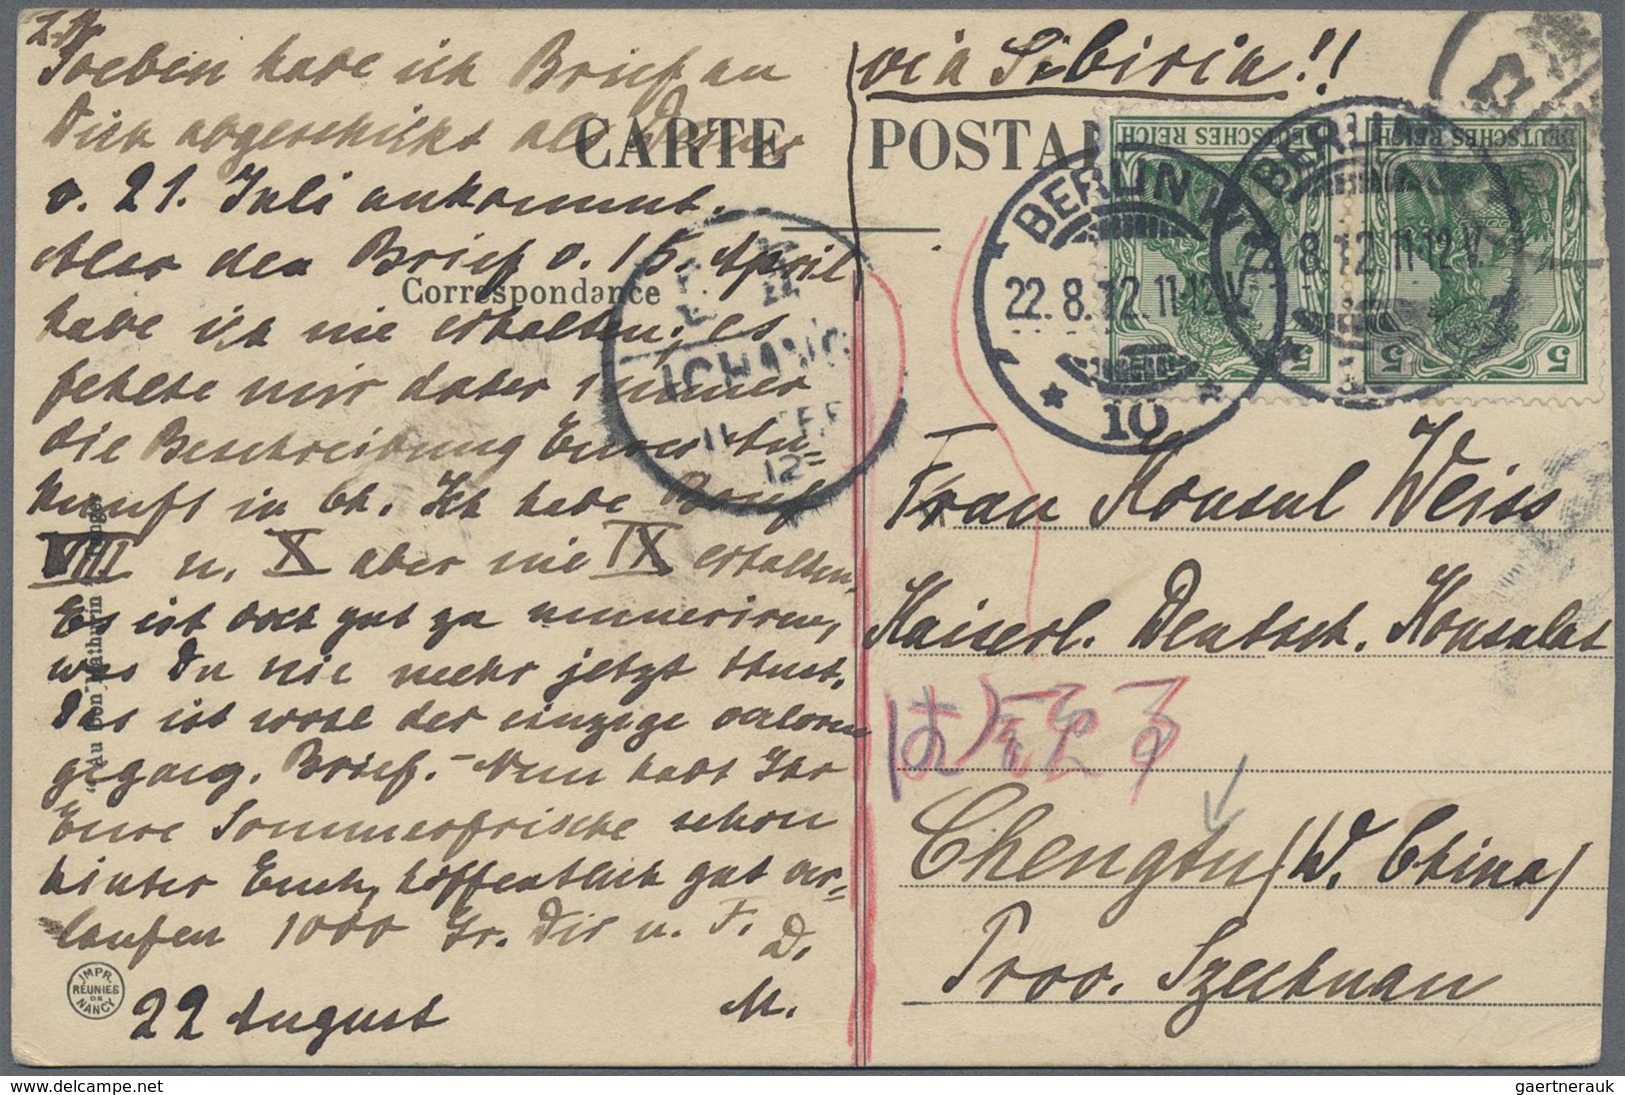 Soeben habe ich Brief an
Dich abgeschickt als Deiner
v. 21. Juli ankommt.
Aber den Brief v. 15. April
habe ich nie erhalten; es
fehlte mir daher immer
die Beschreibung Eurer An-
kunft in Ch. Ich habe Brief
VIII u. X aber nie IX erhalten.
Es ist doch gut zu numeriren,
was Du nie mehr jetzt thust.
Das ist wohl der einzige verloren
gegang. Brief. – Nun habt Ihr
Eure Sommerfrische schon
hinter Euch, hoffentlich gut ver-
laufen 1000 Gr. Dir u. F. D.
M.
22 August
via Sibiria!!
CARTE POSTAL
Correspondance
DEUTSCHES REICH
5
DEUTSCHES REICH
5
BERLIN W
22.8.12.11-12V.
* 10 *
BERLIN
22.8.12.11-12V.
ICHANG
11
12
Frau Konsul Weiss
Kaiserl. Deutsch. Konsulat
Chengtu / W. China /
Prov. Szechuan
IMPR. RÉUNIES DE NANCY
gaertnerauk @ www.delcampe.net